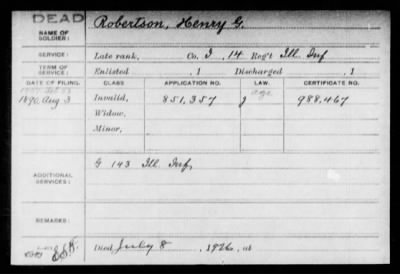 DEAD
NAME OF SOLDIER:
Robertson, Henry G.
SERVICE:
Late rank, Co. I, 14 Reg't Ill. Inf
TERM OF SERVICE:
Enlisted , 1 Discharged , 1
DATE OF FILING. CLASS. APPLICATION NO. LAW. CERTIFICATE NO.
age
1890 Aug. 3 Invalid, 851,357 988.467
Widow,
Minor,
G 143 Ill. Inf.
ADDITIONAL SERVICES:
REMARKS:
Died July 8, 1926, at